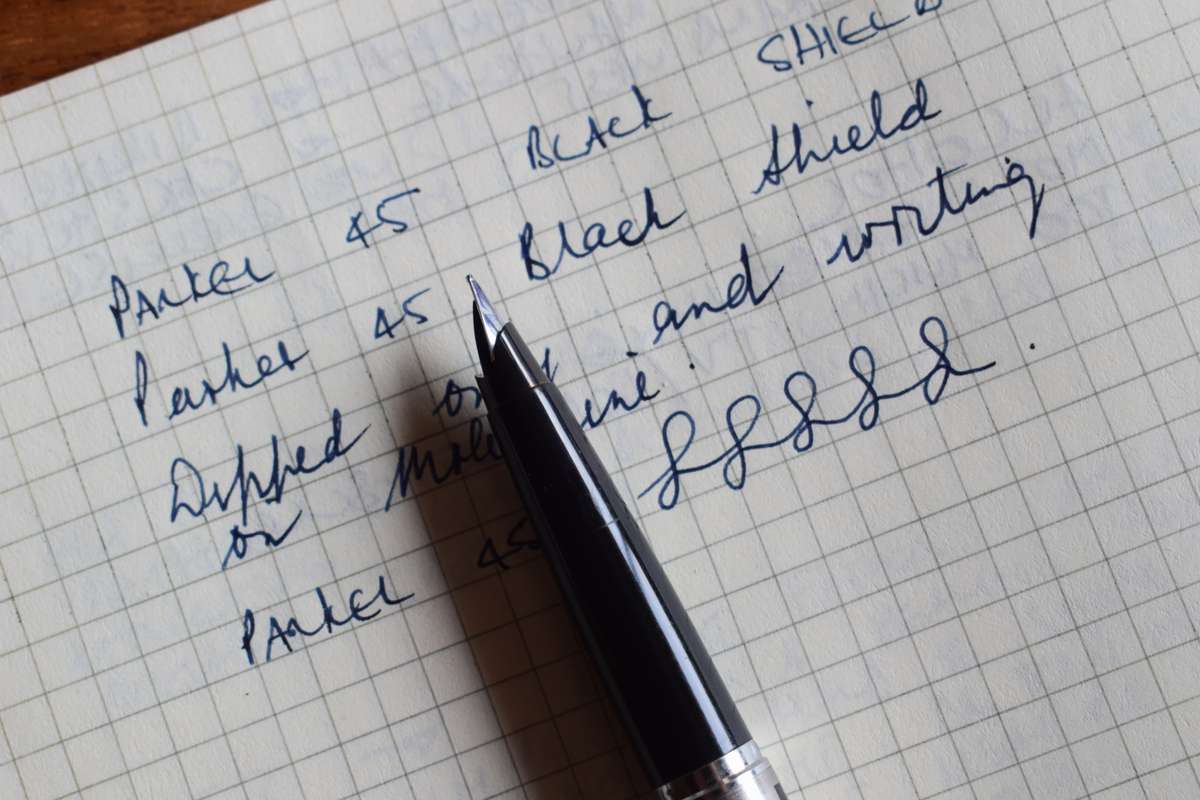 PARKER 45 BLACK SHIELD
Parker 45 Black Shield
Dipped and writing
on
PARKER 45